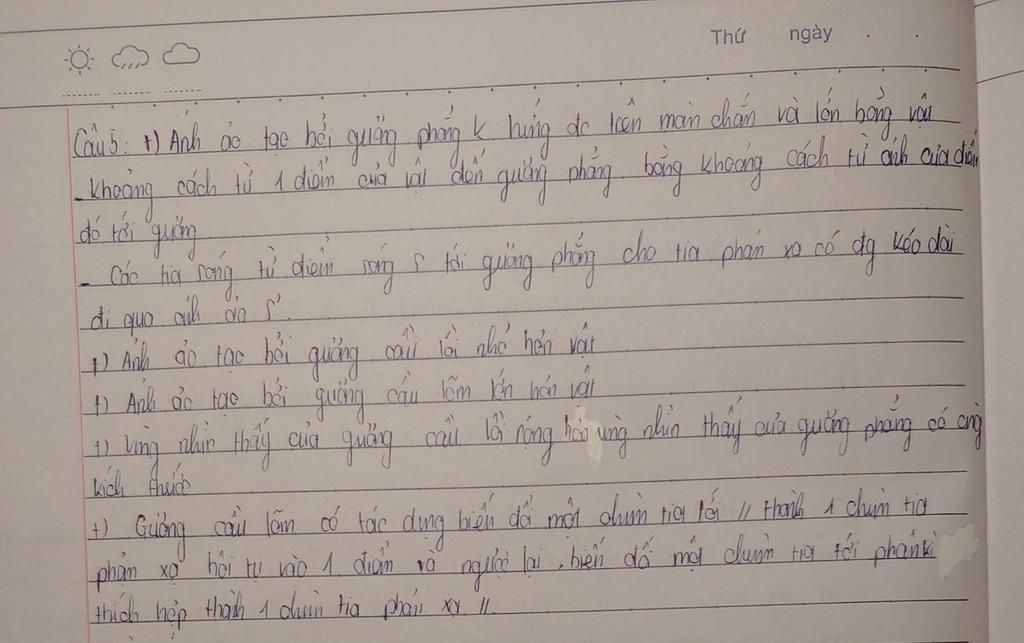 Thứ ngày . .
Câu 5: +) Ảnh ảo tạo bởi gương phẳng k hứng đc trên màn chắn và lớn bằng vật
- khoảng cách từ 1 điểm của vật đến gương phẳng bằng khoảng cách từ ảnh của điểm
đó tới gương
- Các tia sáng từ điểm sáng S tới gương phẳng cho tia phản xạ có đg kéo dài
đi qua ảnh ảo S'.
+) Ảnh ảo tạo bởi gương cầu lồi nhỏ hơn vật
+) Ảnh ảo tạo bởi gương cầu lõm lớn hơn vật
+) Vùng nhìn thấy của gương cầu lồi rộng hơn vùng nhìn thấy của gương phẳng có cùng
kích thước
+) Gương cầu lõm có tác dụng biến đổi một chùm tia tới // thành 1 chùm tia
phản xạ hội tụ vào 1 điểm và ngược lại, biến đổi một chùm tia tới phânkì
thích hợp thành 1 chùm tia phản xạ //.